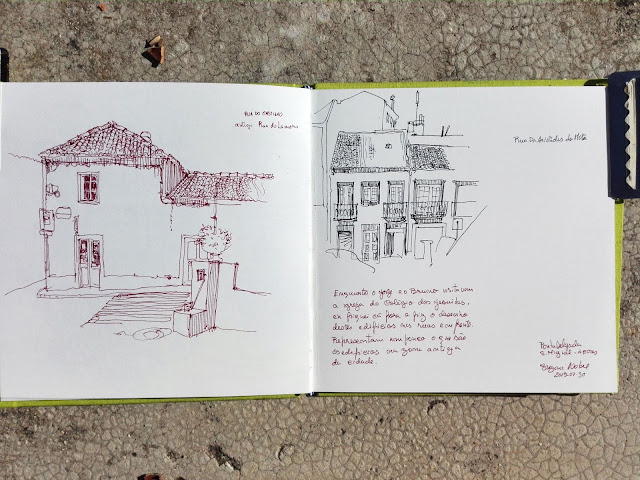 RUA DO
antiga Rua do
Rua Dr. Aristides da Mota
Enquanto o Jorge e o Bruno visitavam
a igreja do Colégio dos Jesuítas,
eu fiquei cá fora a fazer o desenho
destes edifícios nas ruas em frente.
Representam um pouco o que são
os edifícios na zona antiga
da cidade.
Ponta Delgada
S. Miguel - Açores
2019.07.30